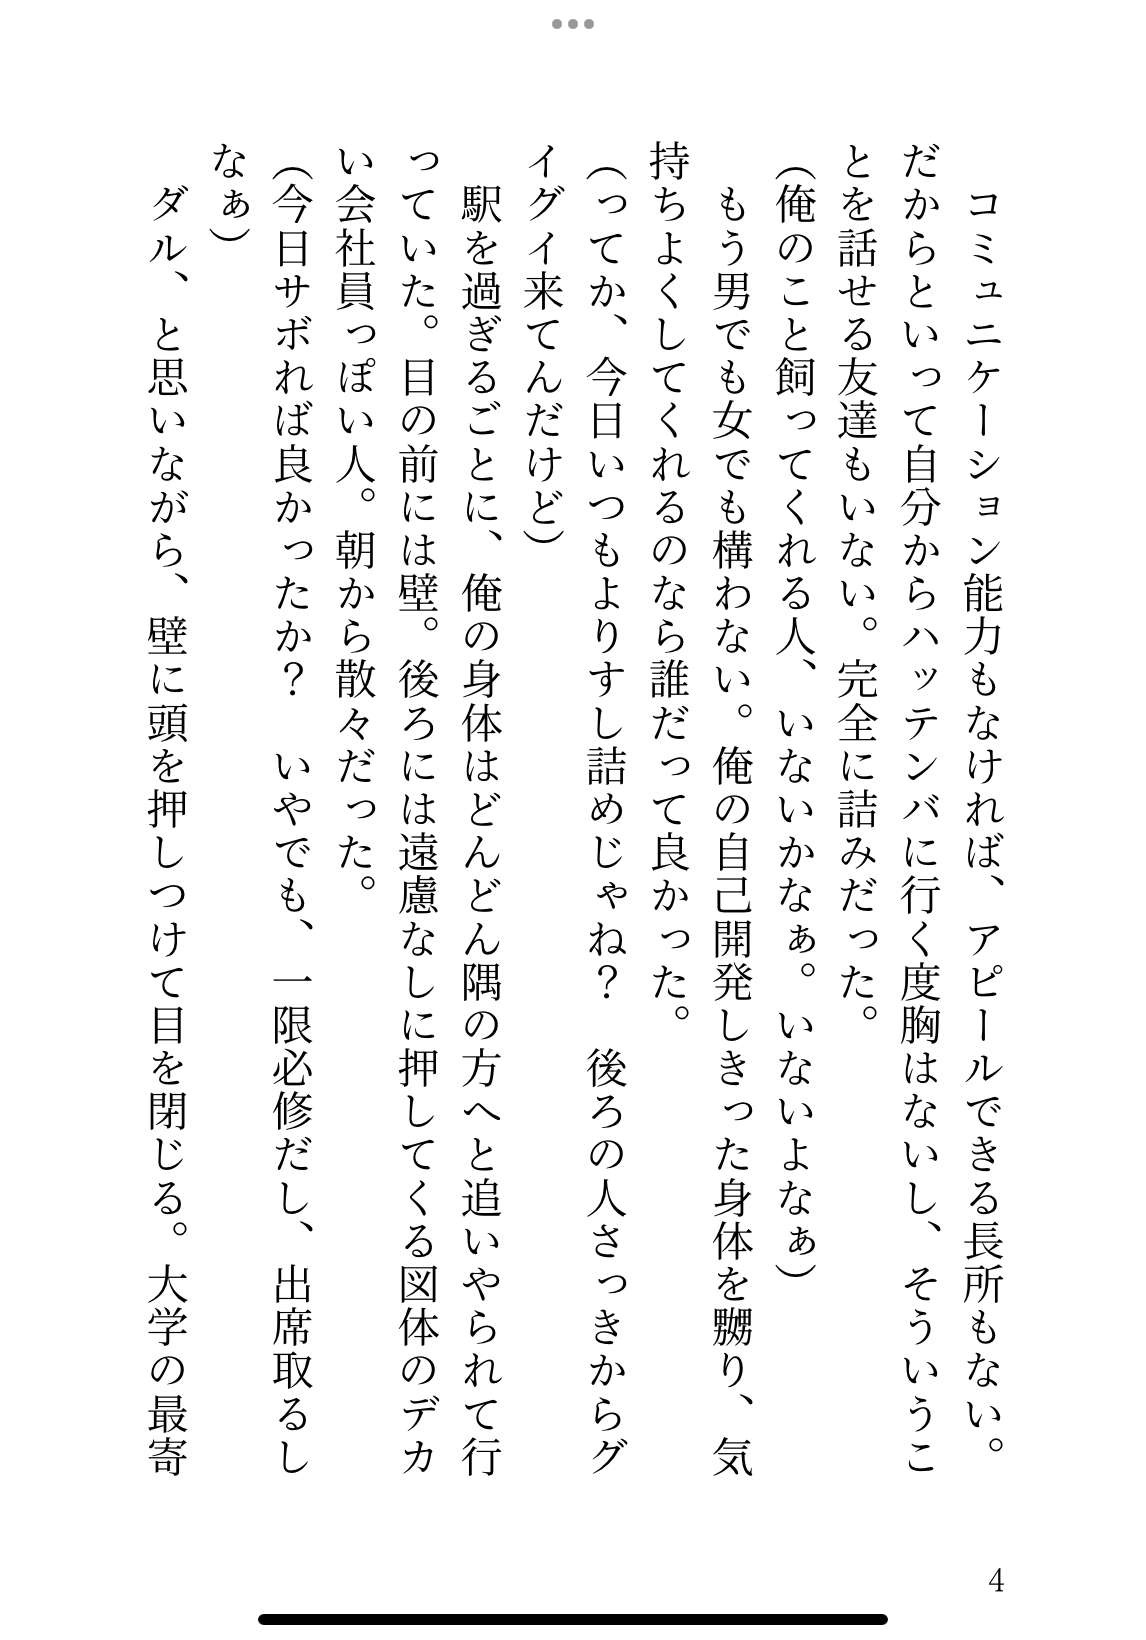 コミュニケーション能力もなければ、アピールできる長所もない。
だからといって自分からハッテンバに行く度胸はないし、そういうこ
とを話せる友達もいない。完全に詰みだった。
（俺のこと飼ってくれる人、いないかなぁ。いないよなぁ）
もう男でも女でも構わない。俺の自己開発しきった身体を嬲り、気
持ちよくしてくれるのなら誰だって良かった。
（ってか、今日いつもよりすし詰めじゃね？　後ろの人さっきからグ
イグイ来てんだけど）
駅を過ぎるごとに、俺の身体はどんどん隅の方へと追いやられて行
っていた。目の前には壁。後ろには遠慮なしに押してくる図体のデカ
い会社員っぽい人。朝から散々だった。
（今日サボれば良かったか？　いやでも、一限必修だし、出席取るし
なぁ）
ダル、と思いながら、壁に頭を押しつけて目を閉じる。大学の最寄
4